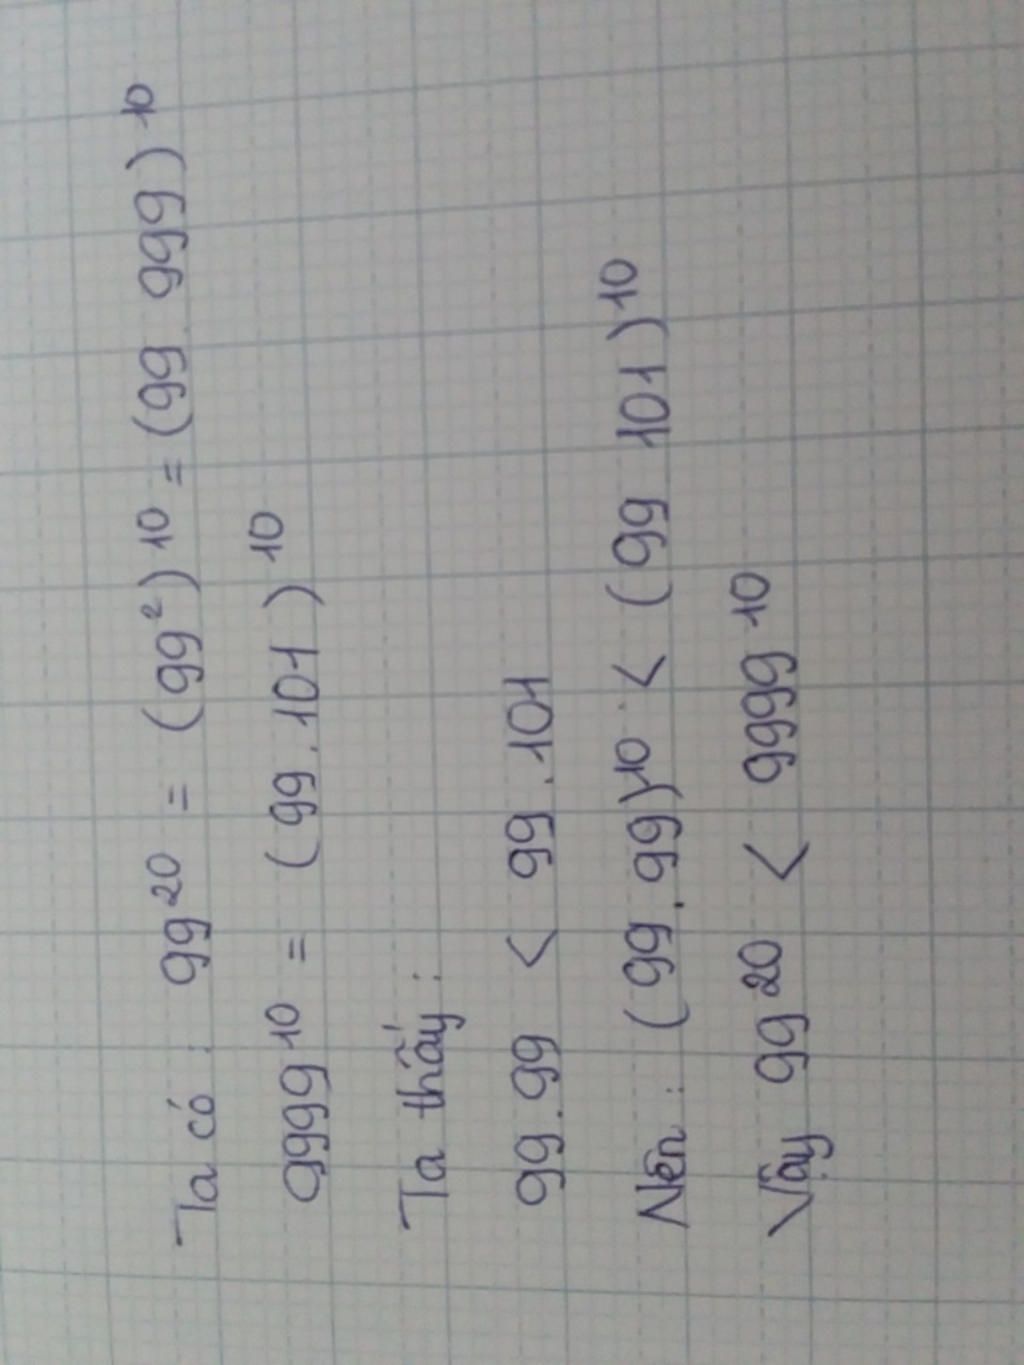 Ta có : 99²⁰ = (99²)¹⁰ = (99. 999)¹⁰
9999¹⁰ = (99.101)¹⁰
Ta thấy :
99.99 < 99.101
Nên : (99.99)¹⁰ < (99 101)¹⁰
Vậy 99²⁰ < 9999¹⁰